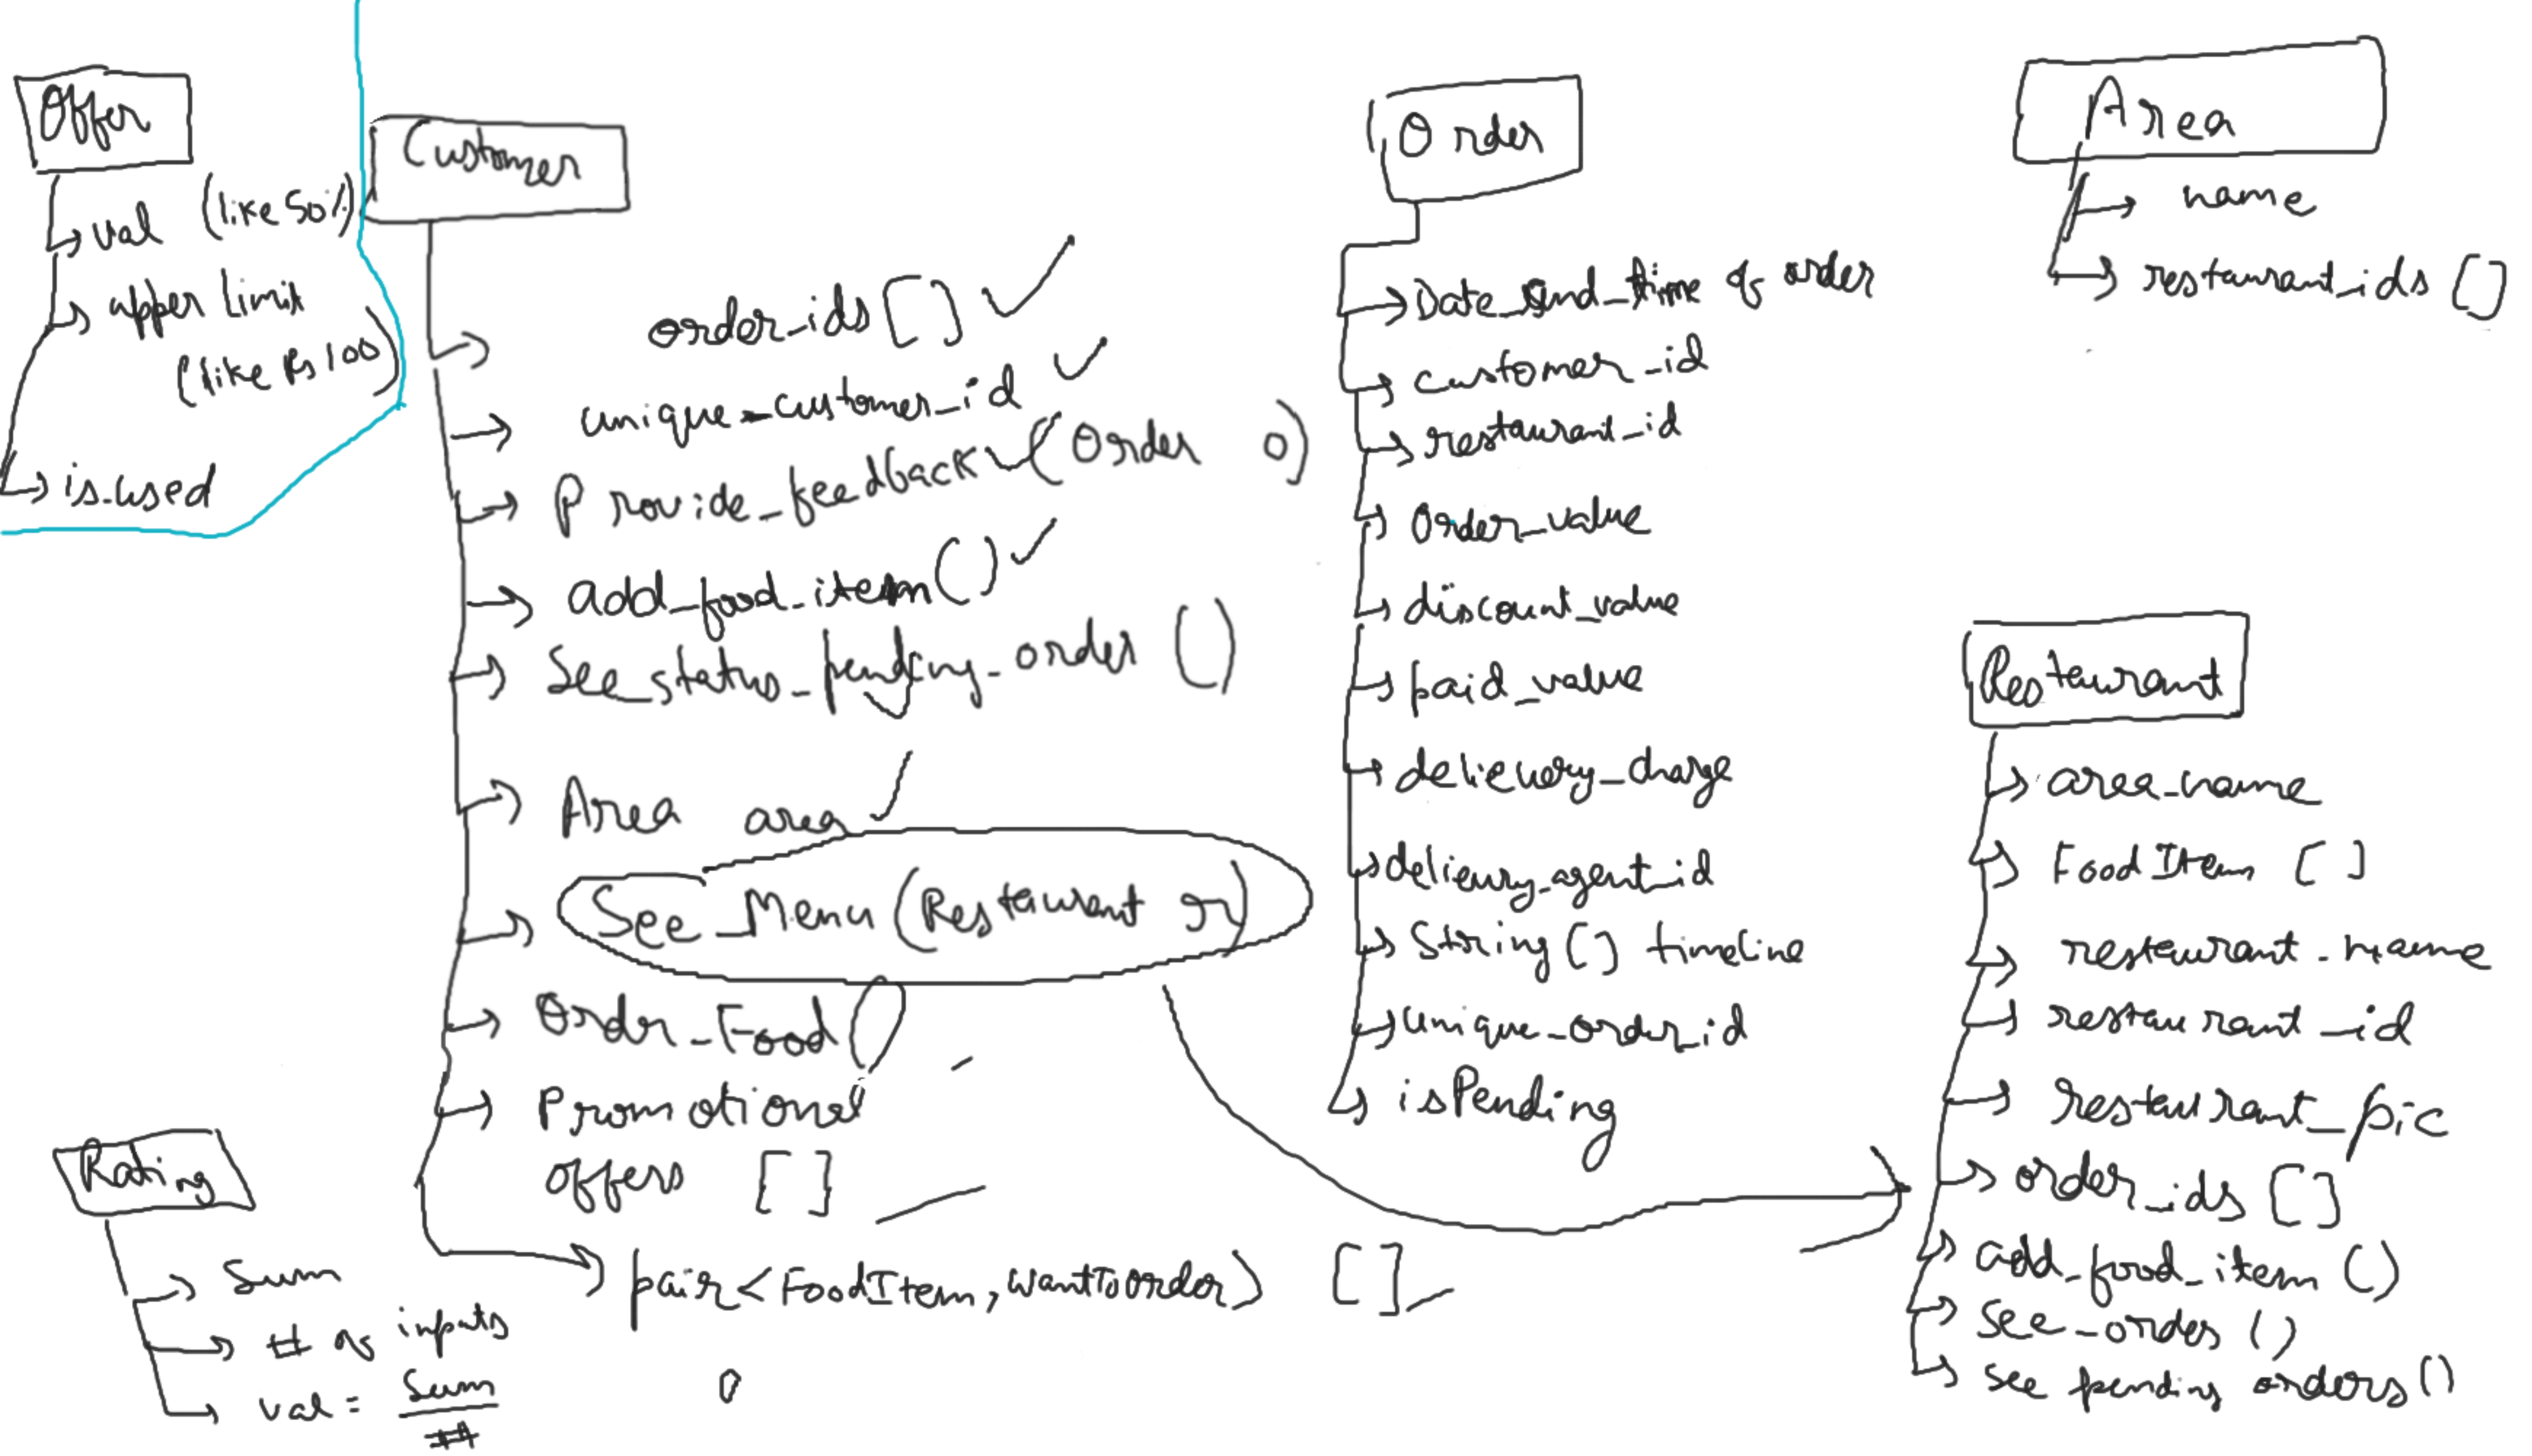 Offer
val (like 50%)
upper limit
(like Rs 100)
is_used
Customer
order_ids []
unique_customer_id
Provide_feedback (Order o)
add_food_item()
See_status_pending_order ()
Area area
See_Menu (Restaurant r)
Order_Food()
Promotional
offers []
pair<FoodItem, wantToOrder> []
Rating
Sum
# of inputs
val = Sum
#
Order
Date_and_time of order
customer_id
restaurant_id
Order_value
discount_value
paid_value
delievery_charge
delievry_agent_id
String [] timeline
unique_order_id
isPending
Area
name
restaurant_ids []
Restaurant
area_name
FoodItem []
restaurant_name
restaurant_id
restaurant_pic
order_ids []
add_food_item ()
See_order ()
See pending orders ()